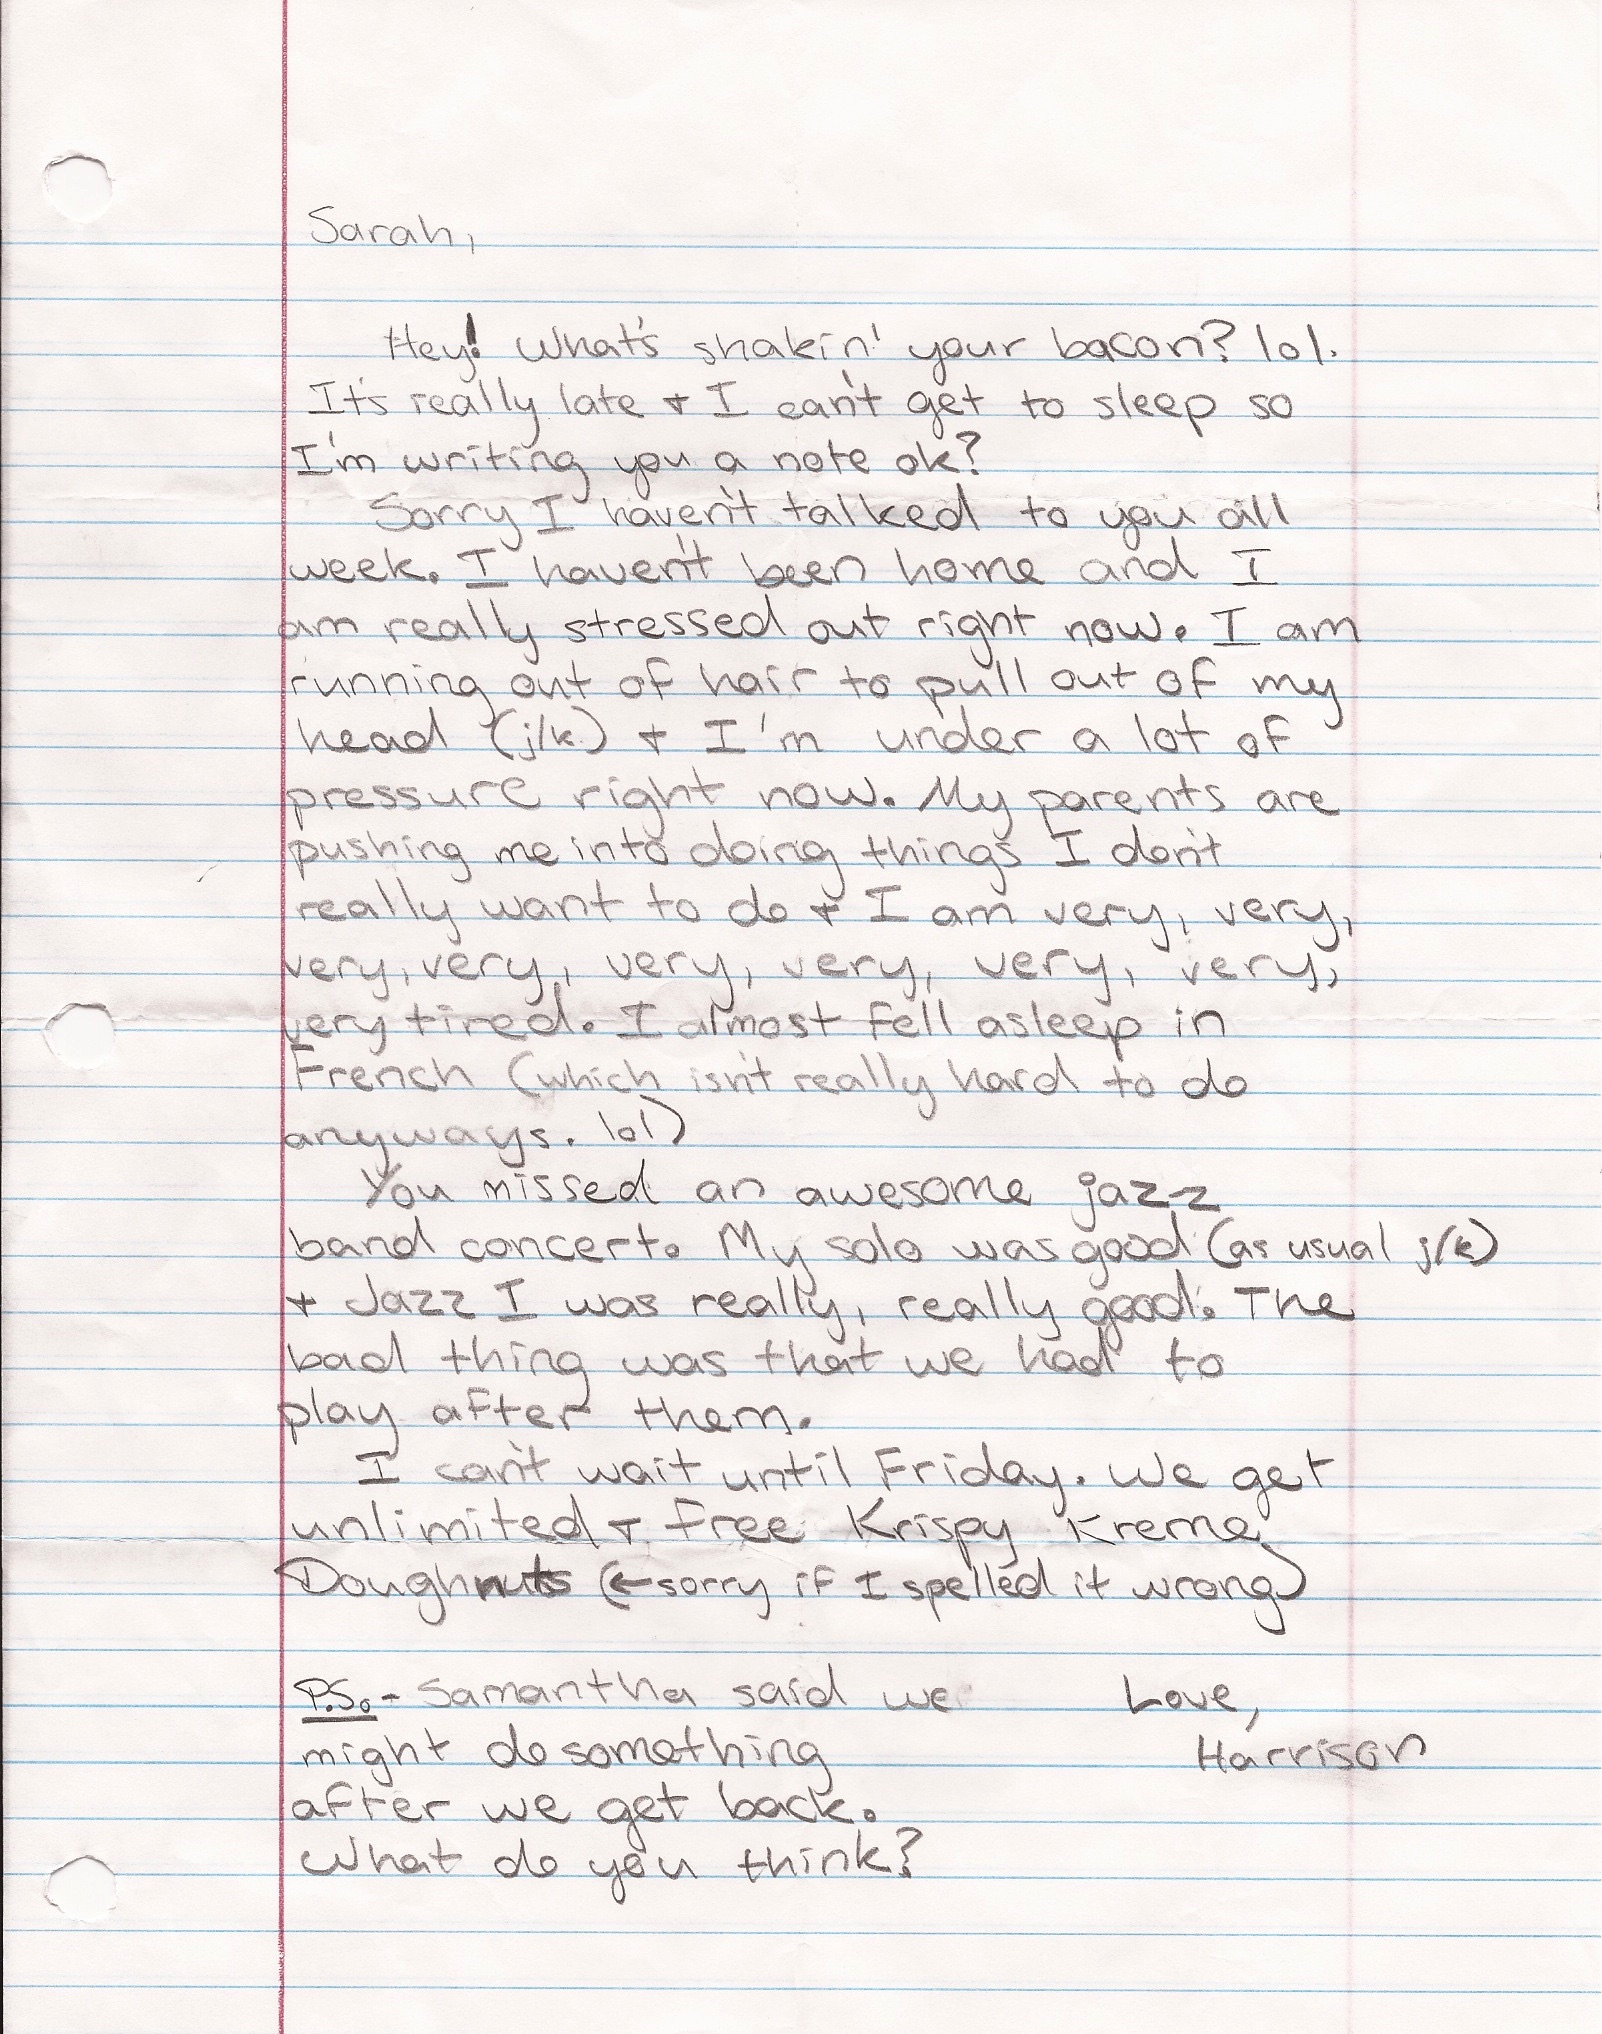 Sarah,
Hey! What's shakin' your bacon? lol.
It's really late + I can't get to sleep so
I'm writing you a note ok?
Sorry I haven't talked to you all
week. I haven't been home and I
am really stressed out right now. I am
running out of hair to pull out of my
head (j/k) + I'm under a lot of
pressure right now. My parents are
pushing me into doing things I don't
really want to do + I am very, very,
very, very, very, very, very, very,
very tired. I almost fell asleep in
French (which isn't really hard to do
anyways. lol)
You missed an awesome jazz
band concert. My solo was good (as usual j/k)
+ Jazz I was really, really good. The
bad thing was that we had to
play after them.
I can't wait until Friday. We get
unlimited + free Krispy Kreme
Doughnuts (←sorry if I spelled it wrong)
P.S. - Samantha said we
might do something
after we get back.
What do you think?
Love,
Harrison